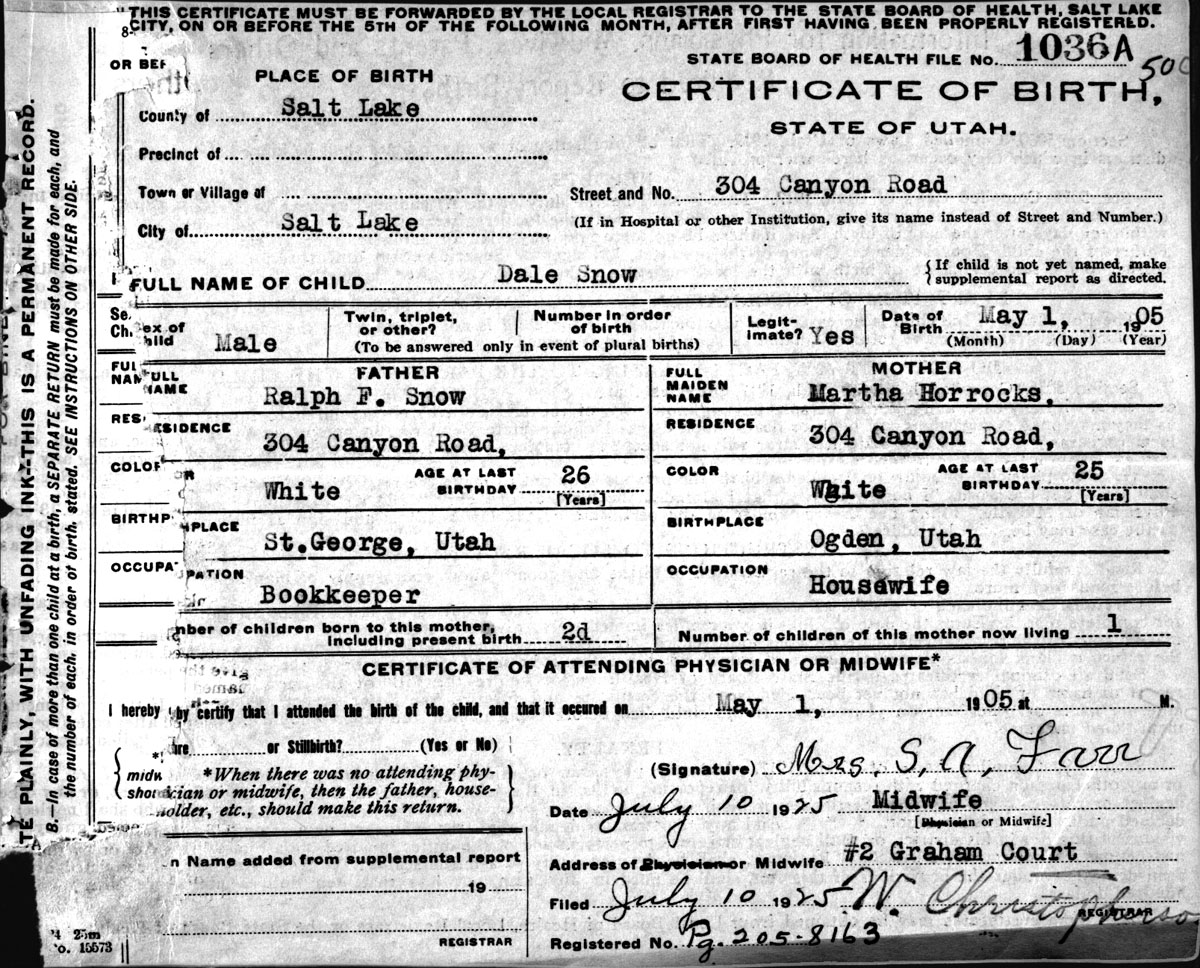 THIS CERTIFICATE MUST BE FORWARDED BY THE LOCAL REGISTRAR TO THE STATE BOARD OF HEALTH, SALT LAKE
CITY, ON OR BEFORE THE 5TH OF THE FOLLOWING MONTH, AFTER FIRST HAVING BEEN PROPERLY REGISTERED.
8-
OR BEF
STATE BOARD OF HEALTH FILE NO. 1036A
500
PLACE OF BIRTH
CERTIFICATE OF BIRTH,
STATE OF UTAH.
County of Salt Lake
Precinct of
Town or Village of
Street and No. 304 Canyon Road
City of Salt Lake
(If in Hospital or other Institution, give its name instead of Street and Number.)
FULL NAME OF CHILD Dale Snow
{If child is not yet named, make
supplemental report as directed.
Sex of
Child Male
Twin, triplet,
or other?
Number in order
of birth
(To be answered only in event of plural births)
Legit-
imate? Yes
Date of
Birth May 1, 1905
(Month) (Day) (Year)
FATHER
FULL
NAME
Ralph F. Snow
RESIDENCE
304 Canyon Road,
COLOR
White
AGE AT LAST
BIRTHDAY 26
[Years]
BIRTHPLACE
St.George, Utah
OCCUPATION
Bookkeeper
MOTHER
FULL
MAIDEN
NAME
Martha Horrocks,
RESIDENCE
304 Canyon Road,
COLOR
White
AGE AT LAST
BIRTHDAY 25
[Years]
BIRTHPLACE
Ogden, Utah
OCCUPATION
Housewife
mber of children born to this mother,
including present birth 2d
Number of children of this mother now living 1
CERTIFICATE OF ATTENDING PHYSICIAN OR MIDWIFE*
I hereby certify that I attended the birth of the child, and that it occured on May 1, 1905 at M.
or Stillbirth? (Yes or No)
*When there was no attending phy-
sician or midwife, then the father, house-
holder, etc., should make this return.
(Signature) Mrs. S. A. Farr
Date July 10 1925 Midwife
[Physician or Midwife]
Address of Physician or Midwife #2 Graham Court
n Name added from supplemental report
19
REGISTRAR
Filed July 10 1925 W. Christopherso
REGISTRAR
Registered No. Pg. 205-8163
4 25m
o. 15573
TE PLAINLY, WITH UNFADING INK--THIS IS A PERMANENT RECORD.
B.—In case of more than one child at a birth, a SEPARATE RETURN must be made for each, and
the number of each, in order of birth, stated. SEE INSTRUCTIONS ON OTHER SIDE.